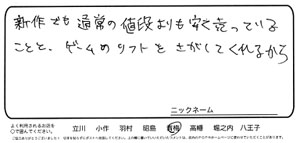 新作でも通常の値段よりも安く売っている
ことと、ゲームのソフトをさがしてくれるから
ニックネーム
よく利用されるお店を
○で囲んでください。
立川 小作 羽村 昭島 青梅 高幡 堀之内 八王子